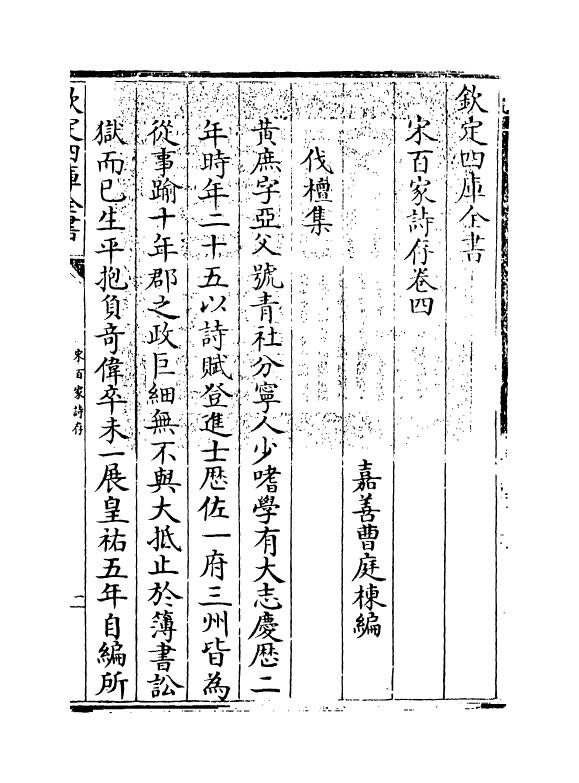 欽定四庫全書
宋百家詩存卷四
嘉善曹庭棟編
伐檀集
黃庶字亞父號青社分寧人少嗜學有大志慶厯二
年時年二十五以詩賦登進士厯佐一府三州皆為
從事踰十年郡之政巨細無不與大抵止於簿書訟
獄而已生平抱負竒偉卒未一展皇祐五年自編所
欽定四庫全書
宋百家詩存